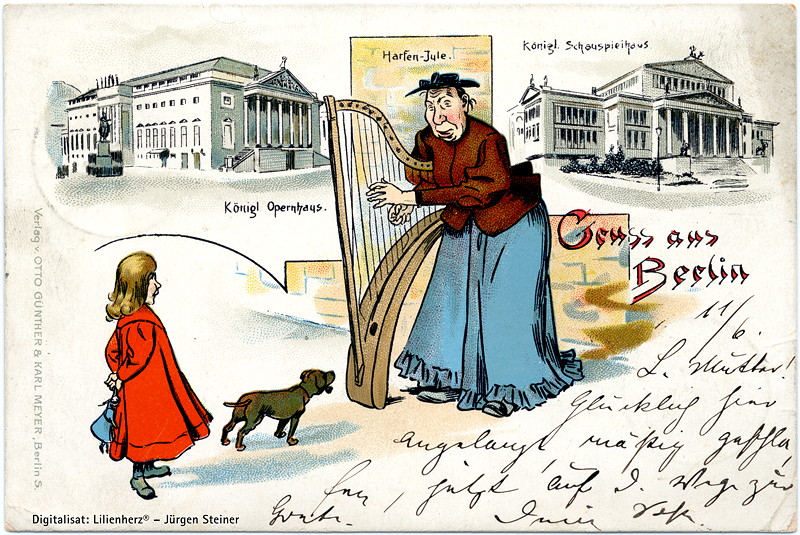 Harfen-Jule.
Königl. Schauspielhaus.
Königl Opernhaus.
Gruss aus
Berlin
11/6.
L. Mutter!
Glücklich hier
angelangt, mäßig geschla
fen, jetzt auf d. Wege zur
Dein
Verlag v. OTTO GÜNTHER & KARL MEYER, Berlin S.
Digitalisat: Lilienherz® – Jürgen Steiner